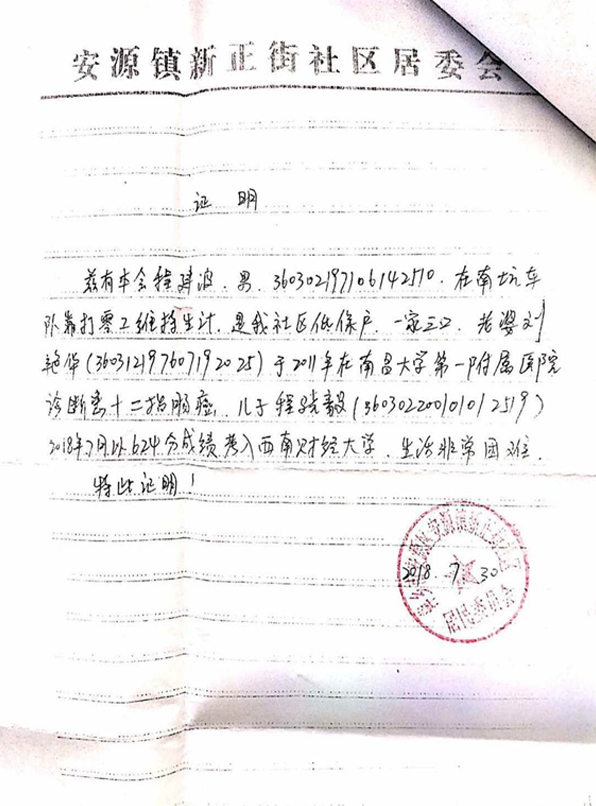 安源镇新正街社区居委会
证 明
兹有本会程建波,男,360302197106142510,在南坑车
队靠打零工维持生计,是我社区低保户,一家三口,老婆刘
艳华(360312197607192025)于2011年在南昌大学第一附属医院
诊断患十二指肠癌,儿子程 毅(360302200101012519)
2018年7月以624分成绩考入西南财经大学,生活非常困难.
特此证明!
2018.7.30
安源镇新正街
居民委员会